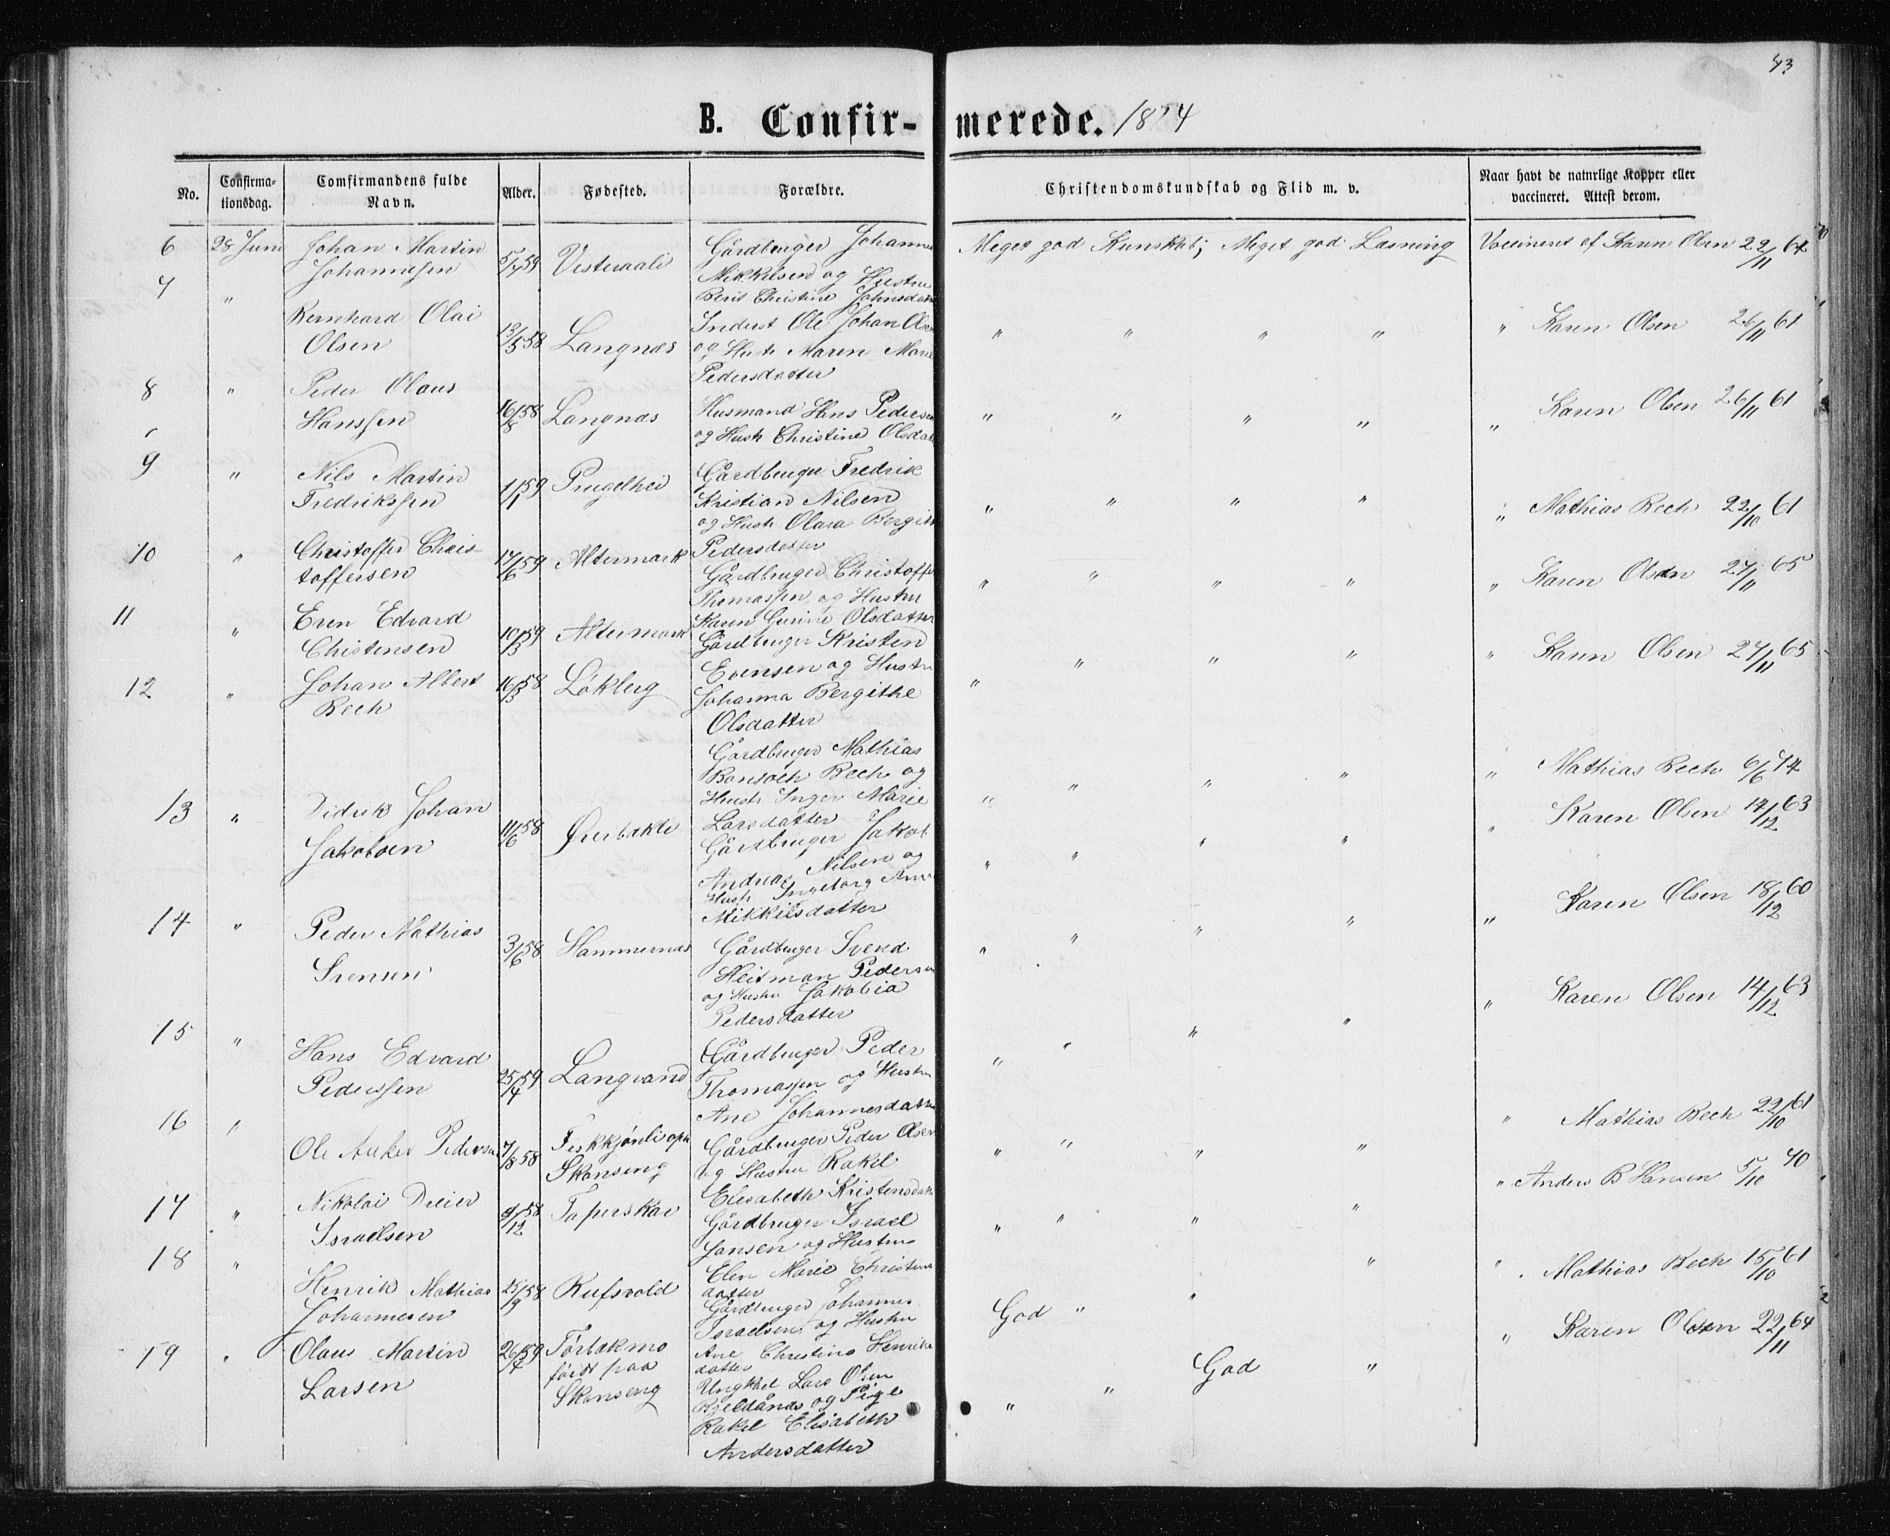 43
B. Confirmerede. 1874
No.
Confirmationsdag.
Comfirmandens fulde Navn.
Alder.
Fødested.
Forældre.
Christendomskundskab og Flid m. v.
Naar havt de naturlige Kopper eller
vaccineret. Attest derom.
6 28 Juni Johan Martin 5/7 59 Vesteraali Gårdbruger Johannes Meget god Kunskab; Meget god Læsning Vaccineret af Karen Olsen 22/11 64
Johannessen Mikkelsen og Hustru
Berit Christine Johnsdatter
7 " Bernhard Olai 13/5 58 Langnæs Inderst Ole Johan Olsen " " " " " Karen Olsen 26/11 61
Olsen og Hustr Maren Marie
Pedersdatter
8 " Peder Olaus 16/8 58 Langnæs Husmand Hans Pedersen " " " " " Karen Olsen 26/11 61
Hanssen og Hustr Christine Olsdatter
9 " Nils Martin 1/1 59 Prugelhei Gårdbruger Fredrik " " " " " Mathias Bech 22/10 61
Fredrikssen Kristian Nilsen
og Hustr Olara Bergith
Pedersdatter
10 " Christoffer Chris- 17/6 59 Altermark Gårdbruger Christoffer " " " " " Karen Olsen 27/11 65
toffersen Thomassen og Hustru
Karen Olsdatter
11 " Even Edvard 10/3 59 Altermark Gårdbruger Kristen " " " " " Karen Olsen 27/11 65
Christensen Evensen og Hustru
Johanna Bergithe
Olsdatter
12 " Johan Albert 16/3 58 Løkberg Gårdbruger Mathias " " " " " Mathias Bech 6/6 74
Bech Bech og
Hustr Inger Marie
Larsdatter
13 " Didrik Johan 11/6 58 Gårdbruger Jakob " " " " " Karen Olsen 17/12 63
Jakobsen Andreas Nilsen og
Hustr Ingeborg Ane
Mikkelsdatter
14 " Peder Mathias 3/6 58 Hammernæs Gårdbruger Svend " " " " " Karen Olsen 18/12 60
Svensen Heitman Pedersen
og Hustru Jakobia
Pedersdatter
15 " Hans Edvard 25/4 59 Langvand Gårdbruger Peder " " " " " Karen Olsen 14/12 63
Pederssen Thomassen og Hustru
Ane Johannesdatter
16 " Ole Anker Pedersen 7/8 58 Gårdbruger Peder Olsen " " " " " Mathias Bech 22/10 61
Skonseng og Hustru Rakel
Elisabeth Kristensdatter
17 " Nikolai Dreier 9/12 58 Taperskar Gårdbruger Israel " " " " " Anders B Hansen 5/10 70
Israelsen Jansen og Hustru
Elen Marie Christina
datter
18 " Henrik Mathias 25/9 58 Rufsvold Gårdbruger Johannes God " " " " Mathias Bech 15/10 61
Johannesen Israelsen og Hustru
Ane Christina Henriks
datter
19 " Olaus Martin 26/4 59 Tørbækmo Ungkarl Lars Olsen " " God " " Karen Olsen 22/11 64
Larsen født paa og Pige
Skonseng Rakel Elisabeth
Andersdatter